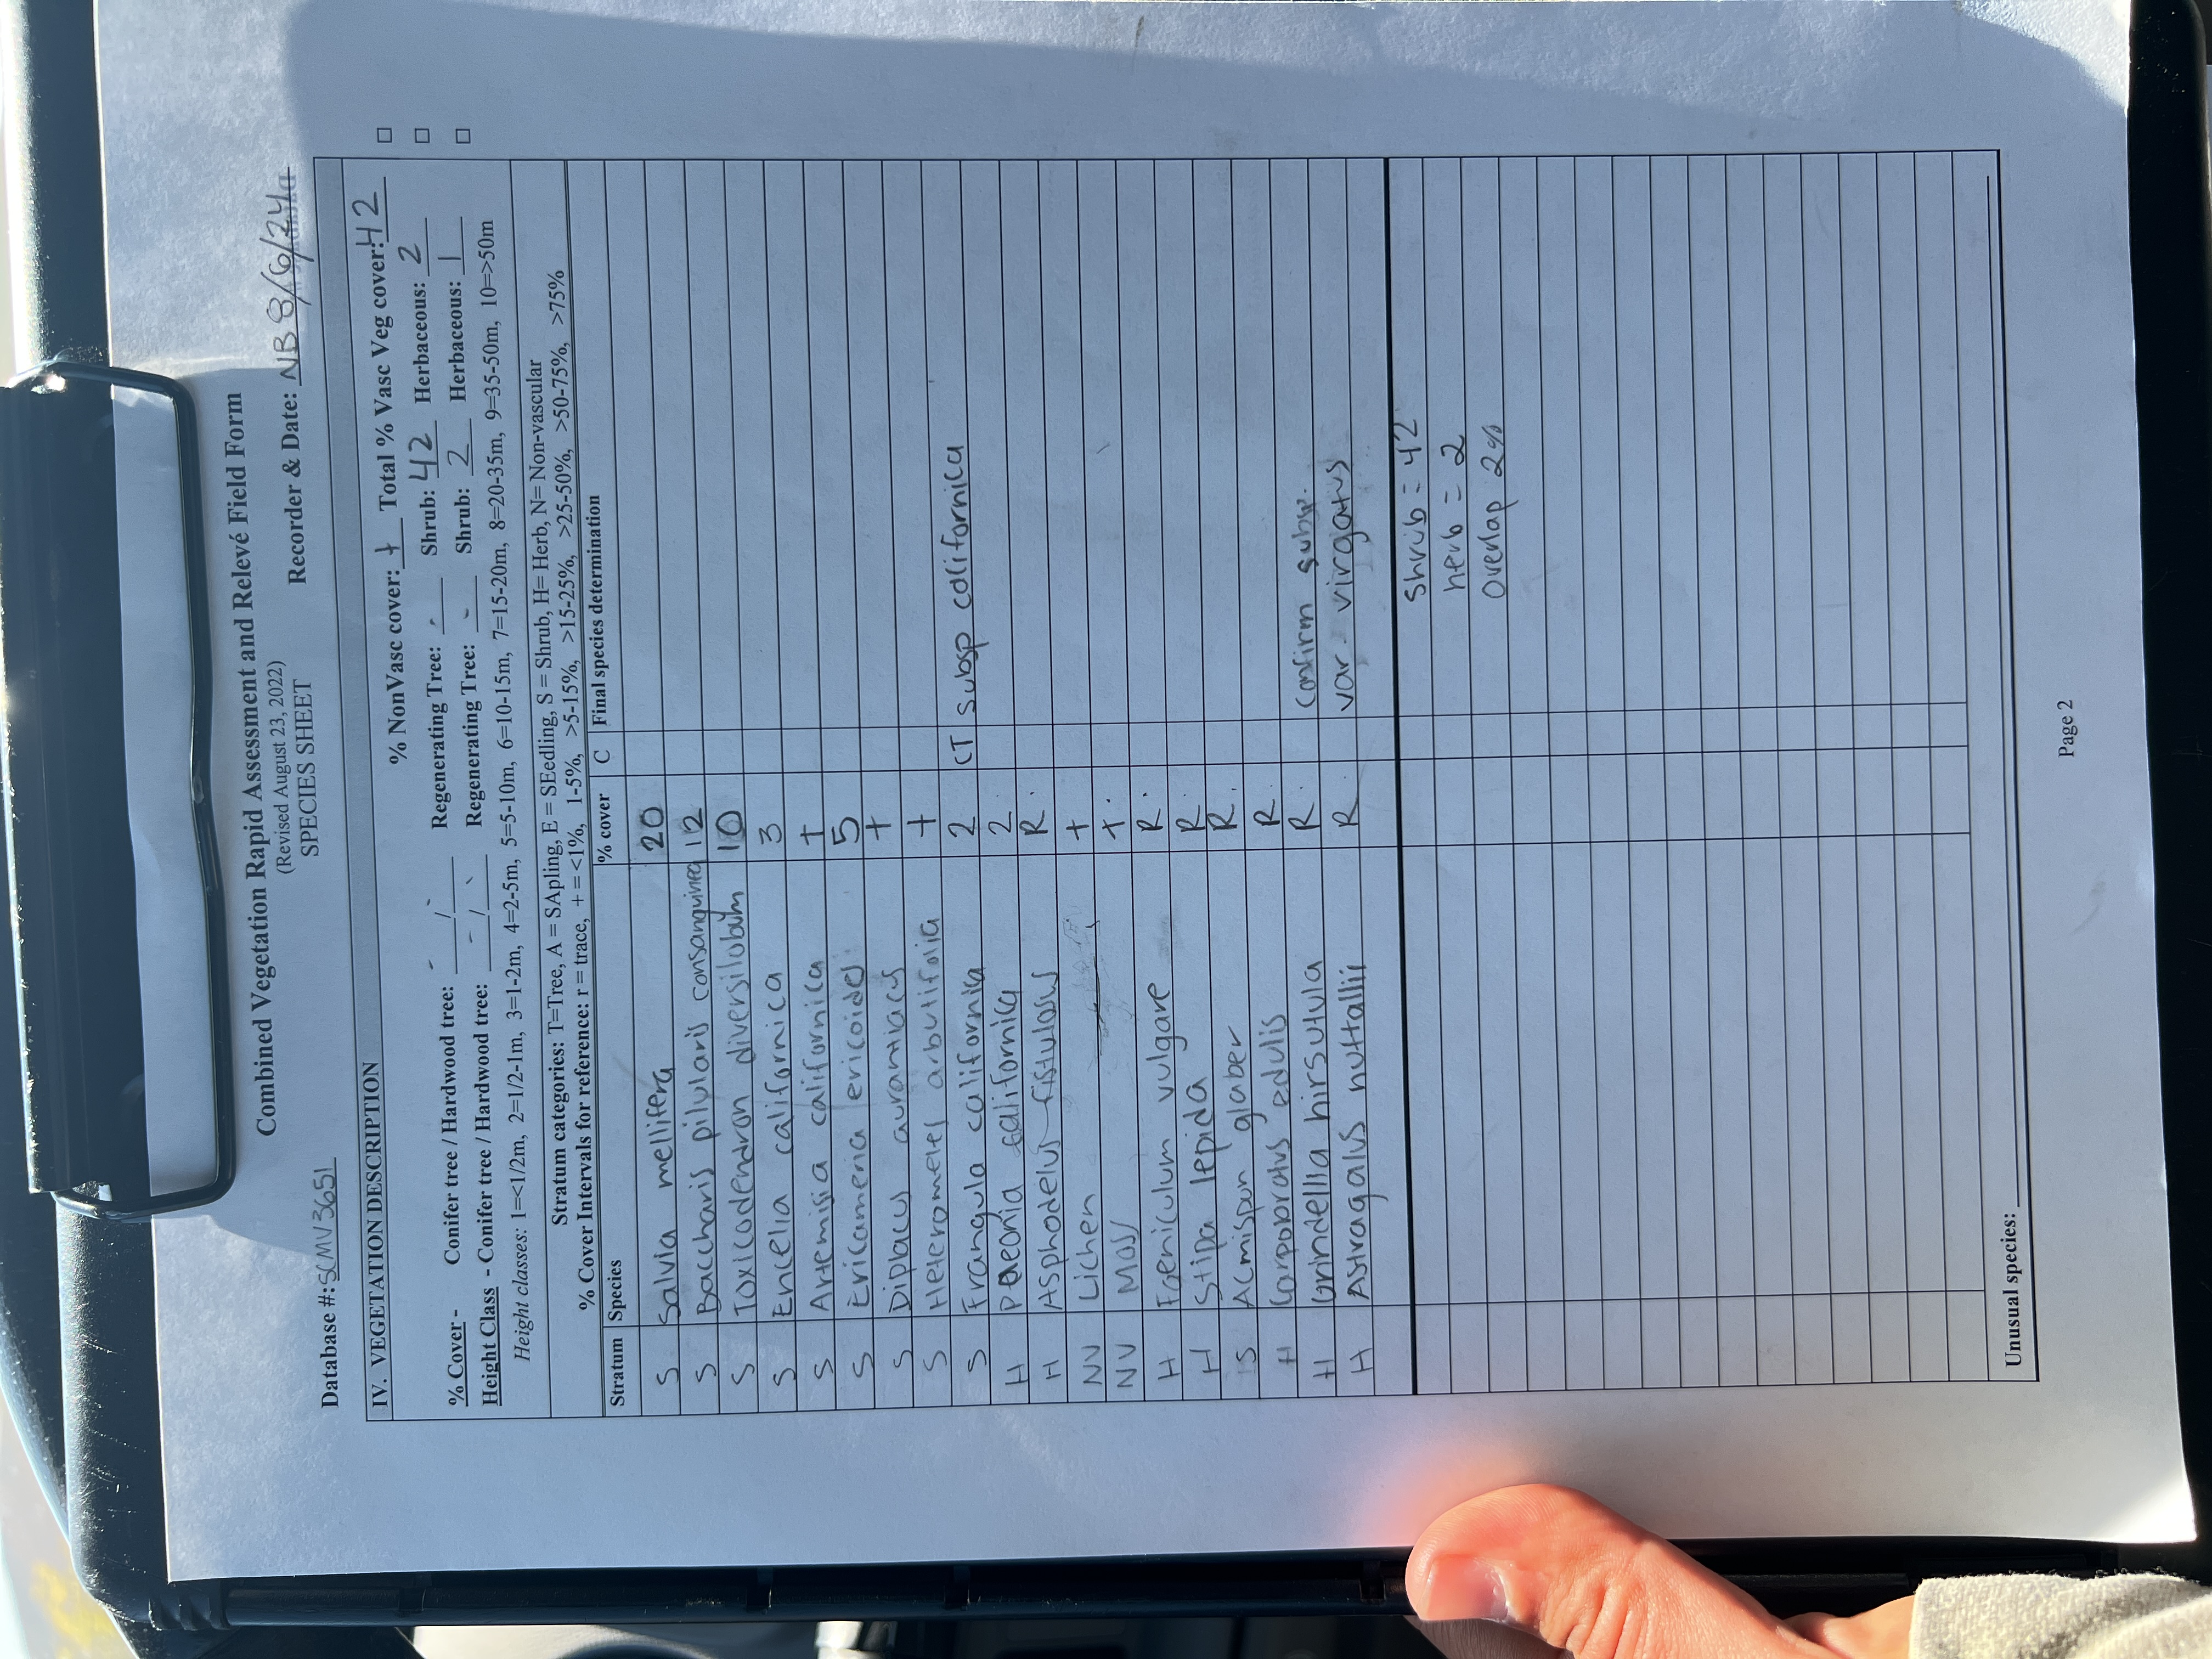 Combined Vegetation Rapid Assessment and Relevé Field Form
(Revised August 23, 2022)
SPECIES SHEET
Database #: SCMV3651 Recorder & Date: NB 8/6/24
IV. VEGETATION DESCRIPTION
% NonVasc cover: + Total % Vasc Veg cover: 42
% Cover - Conifer tree / Hardwood tree: - / - Regenerating Tree: - Shrub: 42 Herbaceous: 2
Height Class - Conifer tree / Hardwood tree: - / - Regenerating Tree: - Shrub: 2 Herbaceous: 1
Height classes: 1=<1/2m, 2=1/2-1m, 3=1-2m, 4=2-5m, 5=5-10m, 6=10-15m, 7=15-20m, 8=20-35m, 9=35-50m, 10=>50m
Stratum categories: T=Tree, A = SApling, E = SEedling, S = Shrub, H= Herb, N= Non-vascular
% Cover Intervals for reference: r = trace, + = <1%, 1-5%, >5-15%, >15-25%, >25-50%, >50-75%, >75%
Stratum Species % cover C Final species determination
S Salvia mellifera 20
S Baccharis pilularis consanguinea 12
S Toxicodendron diversilobum 10
S Encelia californica 3
S Artemisia californica +
S Ericameria ericoides 5
S Diplacus aurantiacus +
S Heteromeles arbutifolia +
S Frangula californica 2 CT subsp californica
H Paeonia californica 2
H Asphodelus fistulosus R
NV Lichen +
NV Moss +
H Foeniculum vulgare R
H Stipa lepida R
S Acmispon glaber R
H Carpobrotus edulis R
H Grindellia hirsutula R confirm subsp.
H Astragalus nuttallii R var. virgatus
shrub = 42
herb = 2
overlap 2%
Unusual species:
Page 2